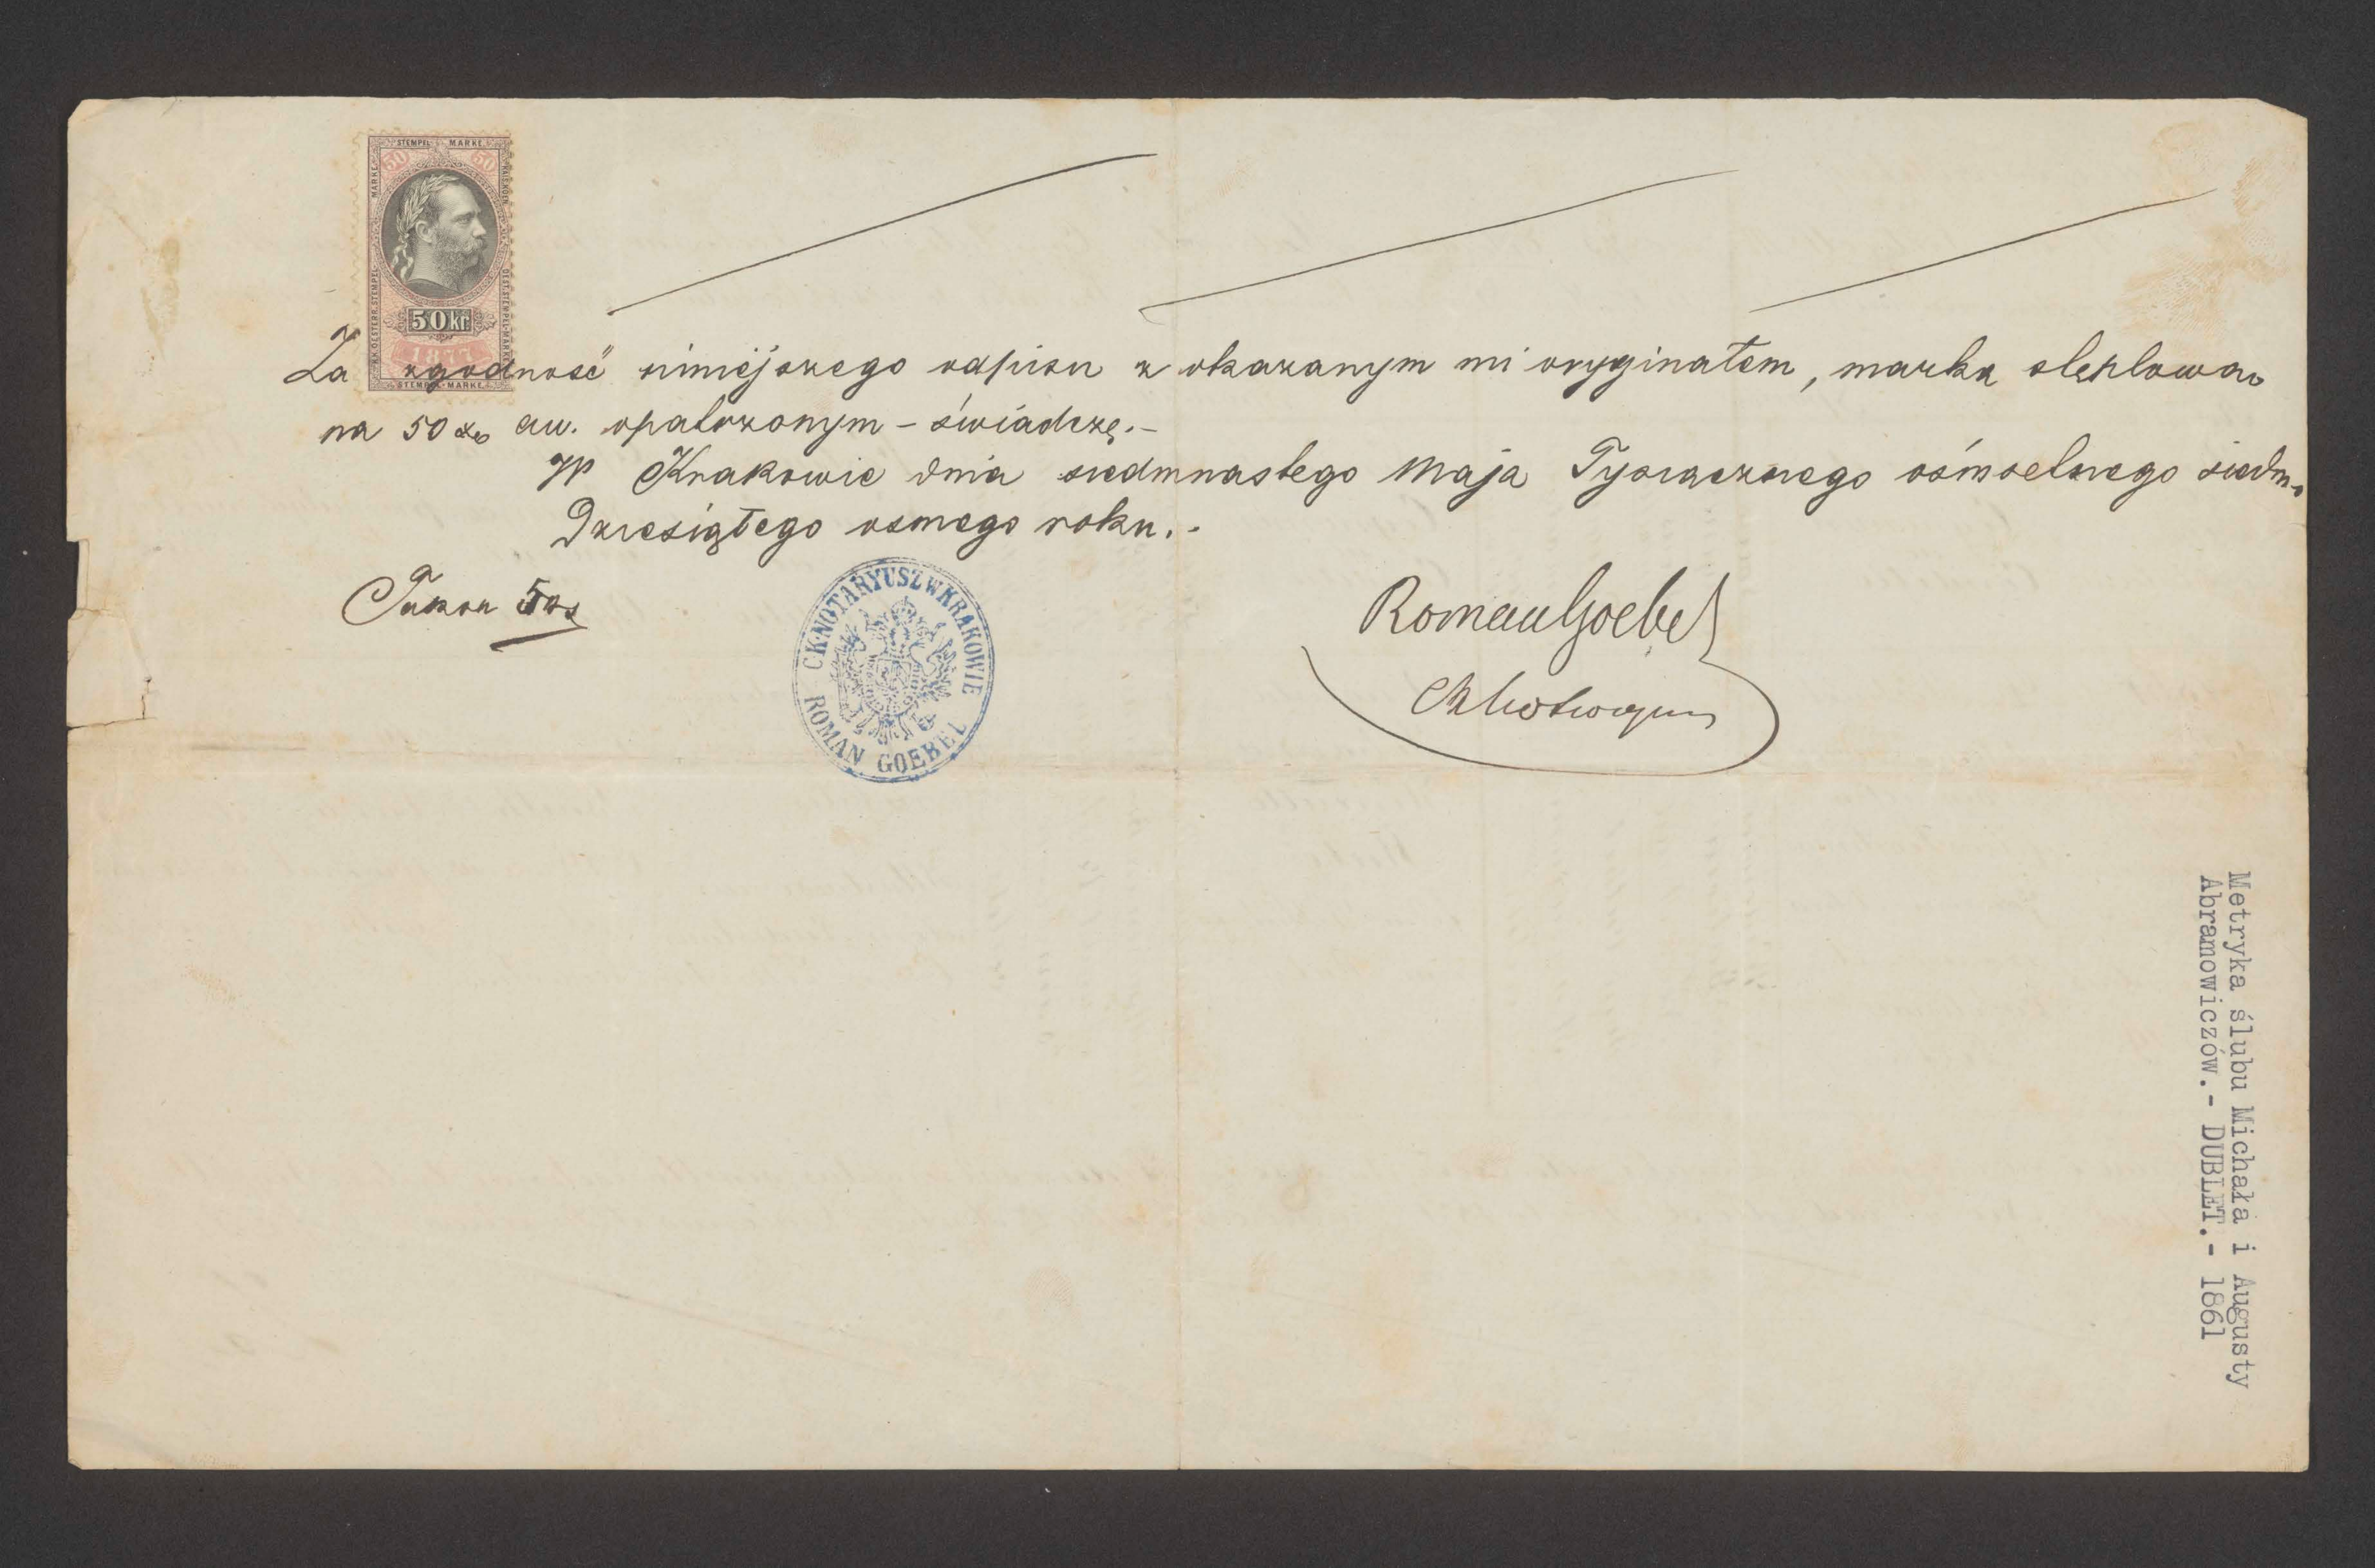 STEMPEL MARKE
50 50
50 kr
1877
STEMPEL-MARKE
Za zgodność niniejszego odpisu z okazanym mi oryginałem, marką stęplowa-
na 50 aw. opatrzonym - świadczę.-
W Krakowie dnia siedmnastego Maja Tysiącznego ośmsetnego siedm-
dziesiątego osmego roku.-
C.K. NOTARYUSZ W KRAKOWIE
ROMAN GOEBEL
Roman Goebel
Metryka ślubu Michała i Augusty
Abramowiczów.- DUBLET.- 1861